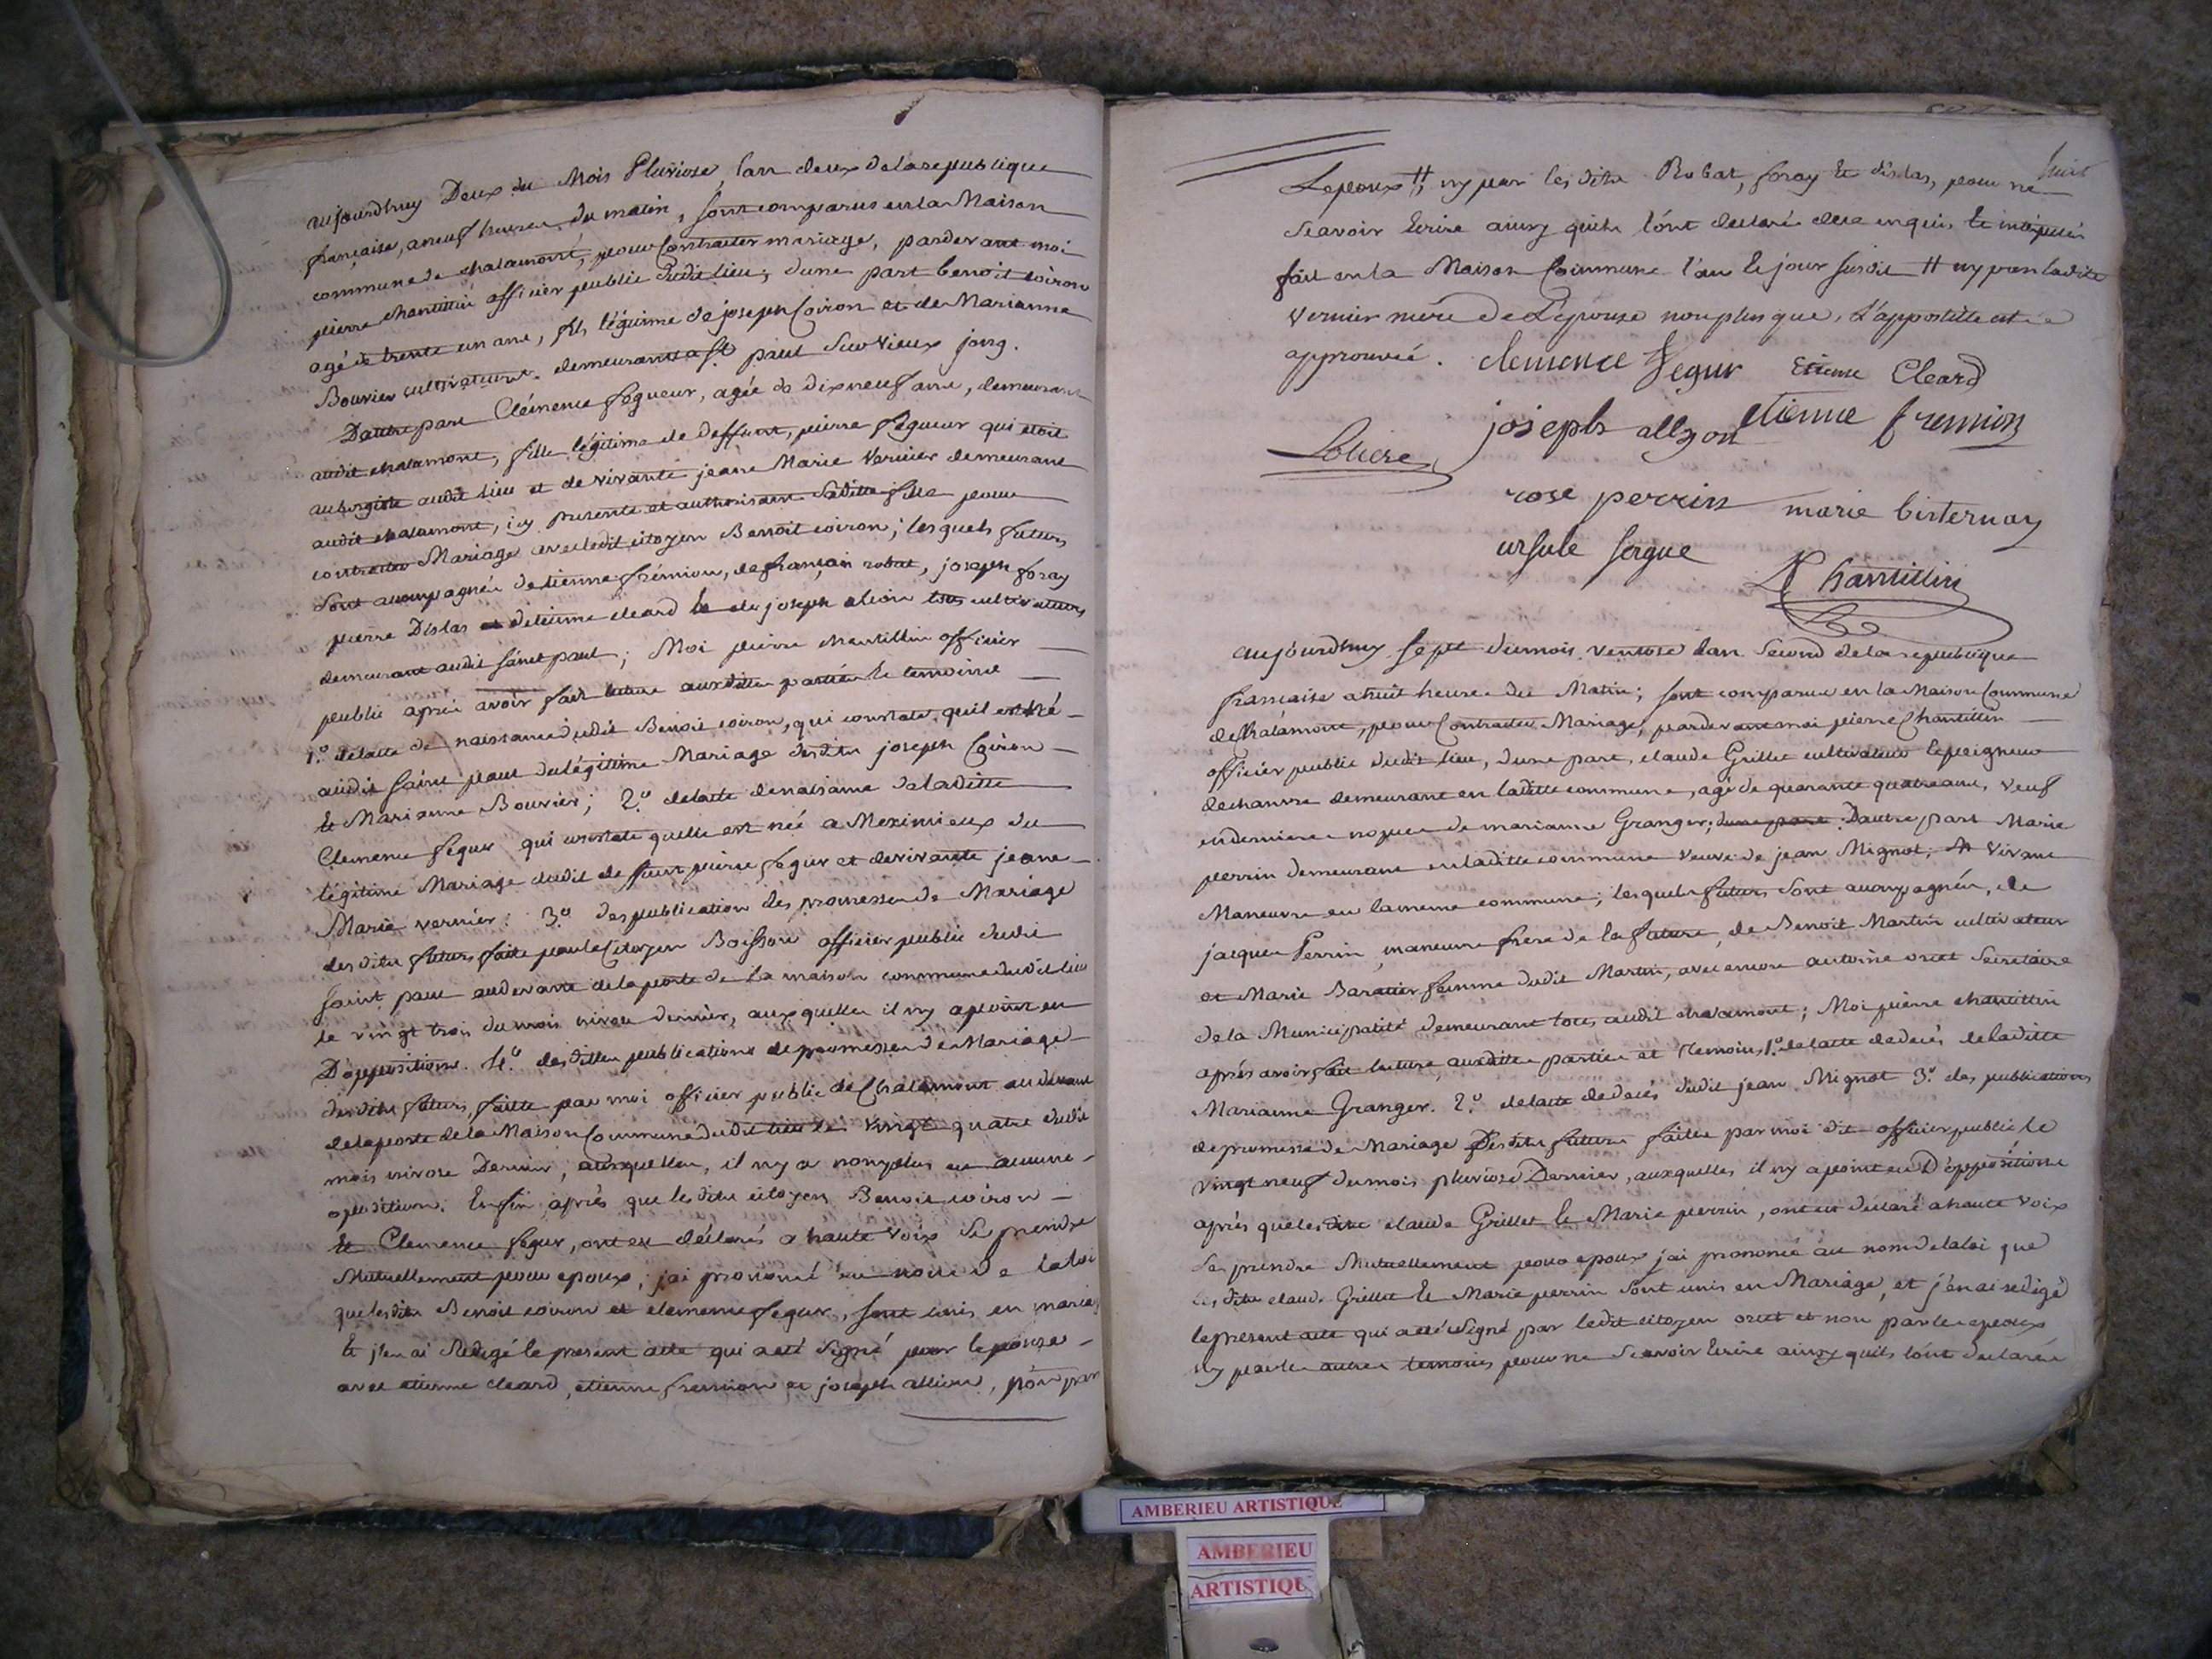 aujourdhuy Deux du Mois Pluviose, lan deux de la republique
française, a neuf heures du matin, sont comparus en la Maison
commune de chalamont, pour Contracter mariage, pardevant moi
pierre chantillin officier public dudit lieu; dune part benoit coiron
agé de trente un ans, fils légitime de joseph Coiron et de Marianne
Bouvier cultivateurs demeurants a St paul
D'autre part Clémence segueur, agée de dixneuf ans, demeurant
audit chalamont, fille légitime de deffunt pierre segueur qui etoit
aubergiste audit lieu et de vivante jeane Marie Vernier demeurant
audit chalamont, icy presente et authorisant Saditte fille pour
contracter Mariage avec ledit citoyen Benoit coiron; lesquels futurs
sont accompagnés detienne frémion, de françois robat, joseph foray
pierre Dislas et detienne cleard et de joseph alion tous cultivateurs
demeurant audit saint paul; Moi pierre chantillin officier
public après avoir fait lecture auxdittes parties et temoins
1.° delacte de naissance dudit Benoit coiron, qui constate quil est né
audit saint paul du légitime Mariage desdits joseph Coiron
et Marianne Bouvier; 2.° delacte denaissance de laditte
Clemence segur qui constate quelle est née a Meximieux du
légitime Mariage dudit defunt pierre segur et devivante jeane
Marie vernier: 3.° des publication des promesses de Mariage
desdits futurs faite par le Citoyen Boisson officier public dudit
saint paul audevant de la porte de la maison commune dudit lieu
le vingt trois du mois nivose dernier, auxquelles il ny a point eu
D'oppositions. 4.° desdittes publications de promesses de Mariage
desdits futurs, faitte par moi officier public de Chalamont au devant
delaporte de la Maison Commune dudit lieu le vingt quatre dudit
mois nivose Dernier, auxquelles, il ny a non plus eu aucune
opositions. Enfin après que lesdits citoyens Benoit coiron
et Clemence segur, ont eu déclarés a haute voix se prendre
Mutuellement pour epoux, jai prononcé au nom de la loi
que lesdits Benoit coiron et clemence segur, sont unis en mariage
et j'en ai Redigé le present acte qui a eté signé par lepouse
avec etienne cleard, etienne fremion et joseph allion, non par
Lepoux ††, ny par les dits Robat, foray et dislas, pour ne
Scavoir Ecrire ainsy quils l'ont declaré de ce enquis et intérpellés
fait en la Maison Commune l'an et jour susdit †† ny par laditte
vernier mere de L'epouse non plus que, L'appostille est
approuvée. clemence segur Etienne Cleard
joseph allyon etienne fremion
rose perrin marie bisternay
ursule sergue
Chantillin
aujourdhuy sept dumois ventose lan Second de la republique
francaise a huit heures du Matin; sont comparus en la Maison Commune
de Chalamont, pour Contracter Mariage, pardevant moi pierre Chantillin
officier public dudit lieu, dune part, claude Grillet cultivateur et peigneur
dechanvre demeurant en laditte commune, agé de quarante quatre ans, veuf
en derniere nopces de marianne Granger; dune part. Dautre part Marie
perrin demeurant en laditte commune veuve de jean Mignot, vivant
Maneuvre en lameme commune; lesquels futurs sont accompagnés, de
jacques Perrin, maneuvre frere de la future, de Benoit Martin cultivateur
et Marie Baratier femme dudit Martin, avec encore antoine orcet Secretaire
de la Municipalité demeurant tous audit chalamont; Moi pierre chantillin
après avoir fait lecture, auxdittes parties et Temoins, 1.° delacte dedecés de laditte
Marianne Granger. 2.° delacte dedecés dudit jean Mignot 3.° des publications
de promesse de Mariage Desdits futurs faittes par moi dit officier public le
vingt neuf du mois pluviose Dernier, auxquelles il ny a point eu D'oppositions
après que lesdits claude Grillet et Marie perrin, ont eu déclaré a haute voix
Se prendre Mutuellement pour epoux jai prononcé au nom de la loi que
les dits claude Grillet et Marie perrin sont unis en Mariage, et j'en ai redigé
le present acte qui a eté signé par ledit citoyen orcet et non par les epoux
ny par les autres temoins pour ne scavoir Ecrire ainsy quils l'ont declarés
AMBERIEU ARTISTIQUE
AMBERIEU
ARTISTIQU